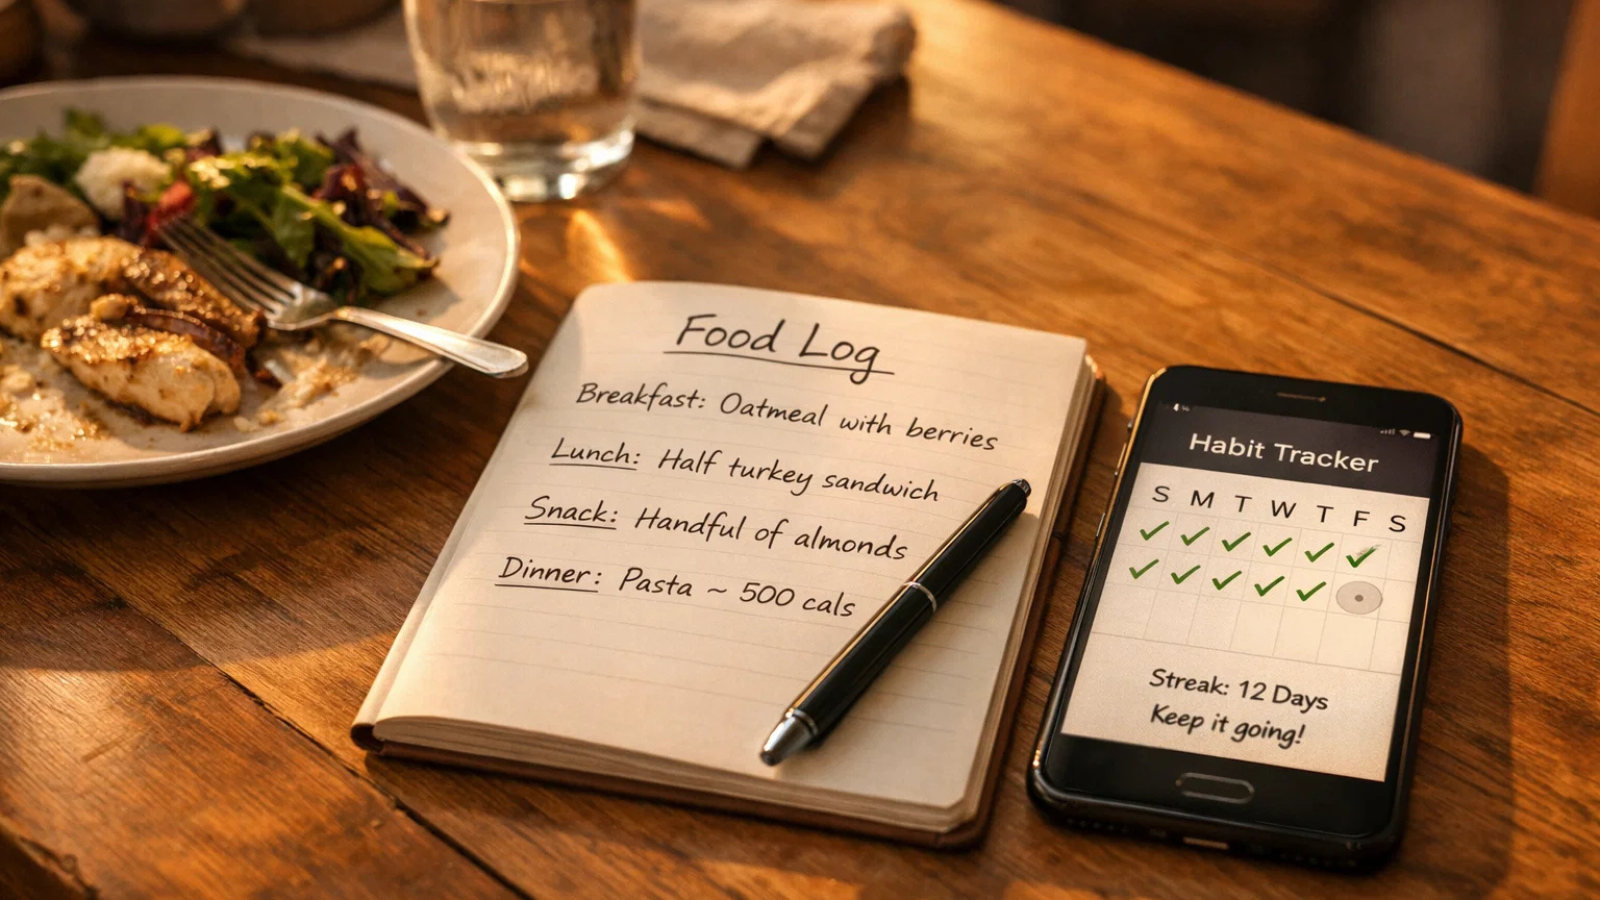 Food Log
Breakfast: Oatmeal with berries
Lunch: Half turkey sandwich
Snack: Handful of almonds
Dinner: Pasta ~ 500 cals
Habit Tracker
S M T W T F S
Streak: 12 Days
Keep it going!